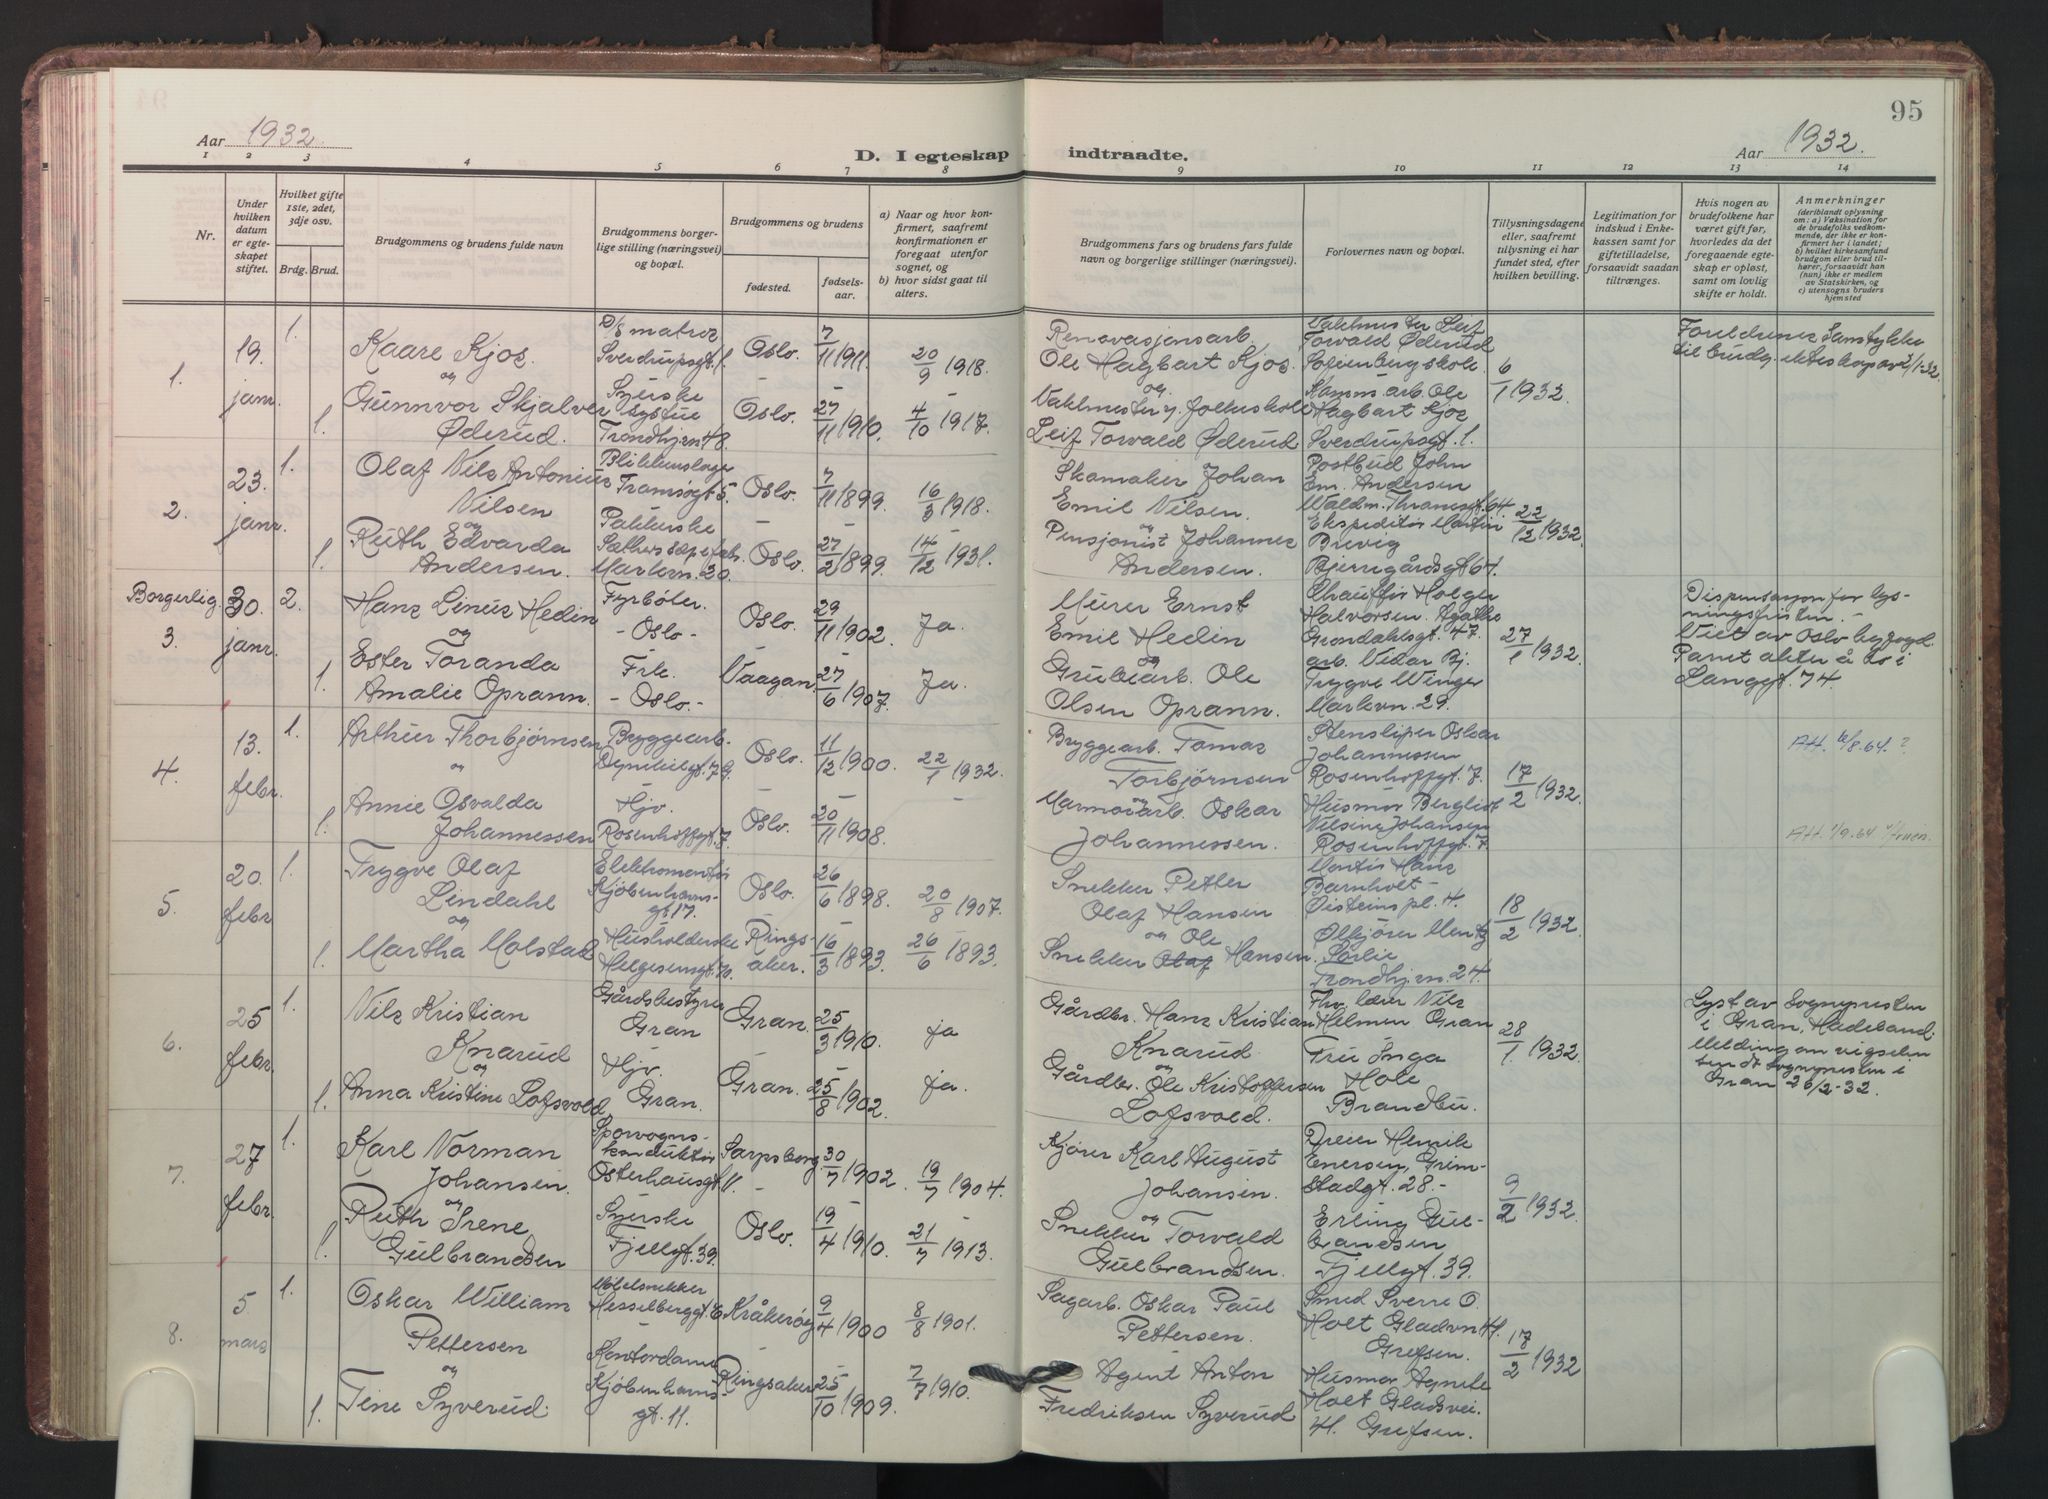 95
Aar 1932
D. I egteskap indtraadte.
Aar 1932.
1 2 3 4 5 6 7 8 9 10 11 12 13 14
Nr.
Under hvilken datum er egteskapet stiftet.
Hvilket gifte 1ste, 2det, 3dje osv.
Brdg. Brud.
Brudgommens og brudens fulde navn
Brudgommens borgerlige stilling (næringsvei) og bopæl.
Brudgommens og brudens
fødested. fødselsaar.
a) Naar og hvor konfirmert, saafremt konfirmationen er foregaat utenfor sognet, og
b) hvor sidst gaat til alters.
Brudgommens fars og brudens fars fulde navn og borgerlige stillinger (næringsvei).
Forlovernes navn og bopæl.
Tillysningsdagene eller, saafremt tillysning ei har fundet sted, efter hvilken bevilling.
Legitimation for indskud i Enkekassen samt for giftetilladelse, forsaavidt saadan tiltrænges.
Hvis nogen av brudefolkene har været gift før, hvorledes da det foregaaende egteskap er opløst, samt om lovlig skifte er holdt.
Anmerkninger
(deriblandt oplysning om: a) Vaksination for de brudefolks vedkommende, der ikke er konfirmert her i landet; b) hvilket kirkesamfund brudgom eller brud tilhører, forsaavidt han (hun) ikke er medlem av Statskirken, og c) utensogns bruders hjemsted
1. 19. janr. 1.
Kaare Kjos
og
D/s matros
Sverdrupsgt. 1.
Oslo. 7/11 1911. 20/9 1918.
Renovasjonsarb.
Ole Hagbart Kjos.
og
Vaktmester Leif
Torvald Øderud
Sofienberg skole.
6/1 1932.
Foreldrenes Samtykke
til brudg. ekteskap av /1-32.
1. Gunnvor Skjalver
Øderud.
Syerske
Trondhjm. 48.
Oslo. 27/11 1910. 4/10 1917.
Vaktmester v. folkeskole
Leif Torvald Øderud
Komm. arb. Ole
Hagbart Kjos
Sverdrupsgt. 1.
2. 23. janr. 1.
Olaf Nils Antonius
Nilsen
og
Blikkenslager
Tromsøgt. 5.
Oslo. 7/11 1899. 16/3 1918.
Skomaker Johan
Emil Nilsen.
og
Postbud John
Em. Andersen
Waldm. Thranesgt. 64
22/12 1932.
1. Ruth Edvarda
Andersen.
Pakkerske
Sæthers Sæpefabr.
Markvn. 20.
Oslo. 27/2 1899. 14/12 1931.
Pensjonist Johannes
Andersen.
Ekspeditør Martin
Brevig
Bjerregårdsgt 64.
Borgerlig.
3. 30. janr. 2.
Hans Linus Hedin
og
Fyrbøter.
- Oslo -
Oslo. 29/11 1902. Ja.
Murer Ernst
Emil Hedin
og
Chauffør Holger
Halvorsen. Agathe
Grøndahlsgt. 47.
27/1 1932.
Dispensasjon for lysningsfristen. -
Viet av Oslo byfogd.
Paret akter å bo i
Langgt. 74.
1. Ester Toranda
Amalie Oprann.
Frk.
- Oslo. -
Vaagan. 27/6 1907. Ja.
Grubearb. Ole
Olsen Oprann.
arb. Vidar Bj.
Trygve Winger
Markvn. 29.
4. 13. febr. 1.
Arthur Thorbjørnsen
og
Bryggearb.
Oslo. 11/12 1900. 22/1 1932.
Bryggearb. Tomas
Torbjørnsen
og
Stensliper Oskar
Johannessen
Rosenhoffgt. 7.
17/2 1932.
Att. /8.64. ?
1. Annie Osvalda
Johannessen
Hjv.
Rosenhoffgt. 7.
Oslo. 20/11 1908.
Marmorarb. Oskar
Johannessen.
Husmor Bergliot
Nilsine Johansen
Rosenhoffgt. 7.
Att. 1/9.64
5. 20. febr 1.
Trygve Olaf
Lindahl
og
Elektromontør
Kjøbenhavnsgt. 17.
Oslo. 26/6 1898. 20/8 1907.
Snekker Petter
Olaf Hansen
og
Hans
Barnholt -
Øisteins pl. 4.
18/2 1932.
1. Martha Molstad
Husholderske
Helgesensgt.
Ringsaker. 16/3 1893. 26/6 1893.
Ole
Snekker Olaf Hansen.
Ølkjører
Sørlie
Trondhjm. 24.
6. 25 febr. 1.
Nils Kristian
Knarud
og
Gårdsbestyrer
Gran
Gran. 25/3 1910. ja
Gårdbr. Hans Kristian
Knarud.
og
Fhv. lærer Nils
Helmen Gran
28/1. 1932.
Lyst av Sognepresten
i Gran, Hadeland.
Melding om vigselen
sendt Sognepresten i
Gran 26/2-32.
1. Anna Kristine Lofsvold.
Hjv.
Gran.
Gran. 25/8 1902. ja
Gårdbr. Ole Kristoffersen
Lofsvold.
Fru Inga
Hole
Brandbu.
7. 27 febr. 1.
Karl Norman
Johansen.
og
Sporvognskonduktør
Osterhausgt. 11.
Sarpsborg. 30/7 1902. 19/7 1904.
Kjører Karl August
Johansen.
og
Dreier Henrik
Enersen, Grimstadgt. 28. -
9/2 1932.
1. Ruth Irene
Gulbrandsen
Syerske
Fjellgt. 39.
Oslo. 19/4 1910. 21/7 1913.
Snekker Torvald
Gulbrandsen.
Erling Gulbrandsen
Fjellgt. 39.
8. 5. mars 1.
Oskar William
Pettersen
og
Møbelsnekker
Kråkerøy 9/4 1900 8/8 1901.
Sagarb. Oskar Paul
Pettersen.
Smed Sverre O.
Holt Gladvn 41.
Grefsen.
17/2 1932
1. Tine Syverud.
Kontordame
Kjøbenhavnsgt. 11.
Ringsaker 25/10 1909. 7/7 1910.
Agent Anton
Fredriksen Syverud
Husmor Agnete
Holt Gladsvei.
41. Grefsen.